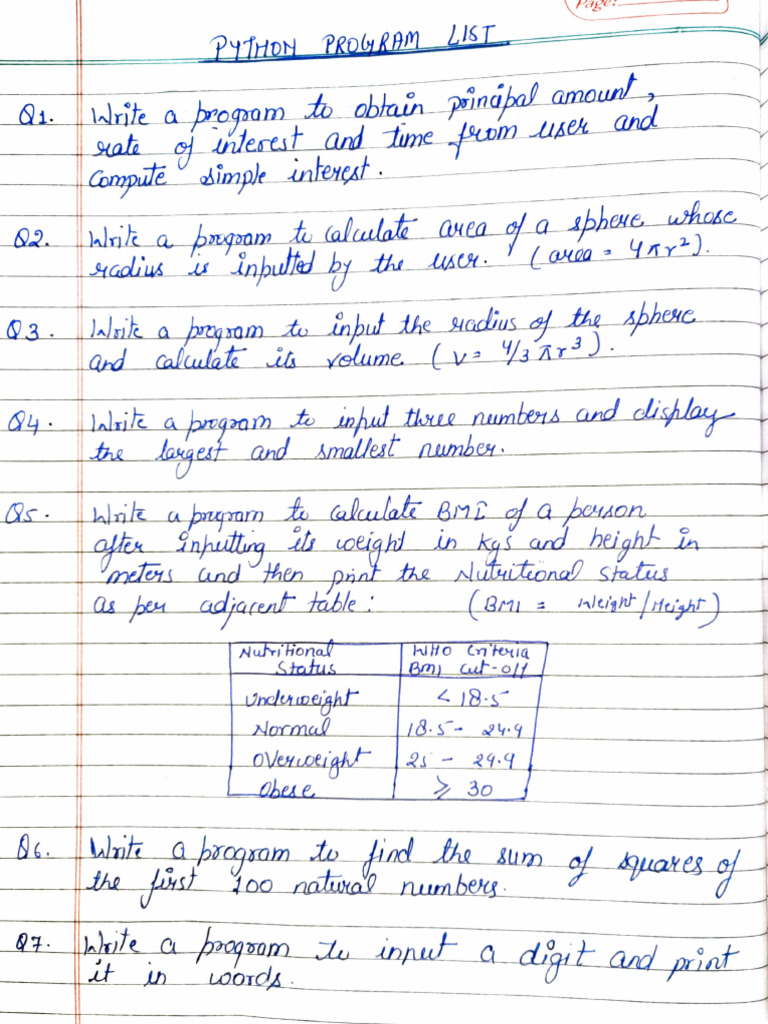 Page:
PYTHON PROGRAM LIST
Q1. Write a program to obtain principal amount,
rate of interest and time from user and
compute simple interest.
Q2. Write a program to calculate area of a sphere whose
radius is inputted by the user. (area = 4πr²).
Q3. Write a program to input the radius of the sphere
and calculate its volume (v = 4/3 πr³).
Q4. Write a program to input three numbers and display
the largest and smallest number.
Q5. Write a program to calculate BMI of a person
after inputting its weight in kgs and height in
meters and then print the Nutritional Status
as per adjacent table: (BMI = Weight/Height)
Nutritional Status WHO Criteria BMI Cut-off
Underweight < 18.5
Normal 18.5 - 24.9
Overweight 25 - 29.9
Obese ≥ 30
Q6. Write a program to find the sum of squares of
the first 100 natural numbers.
Q7. Write a program to input a digit and print
it in words.